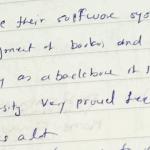 their software sys
gment of books and
y as a backbone it s
sity. Very proud fee
s a lot